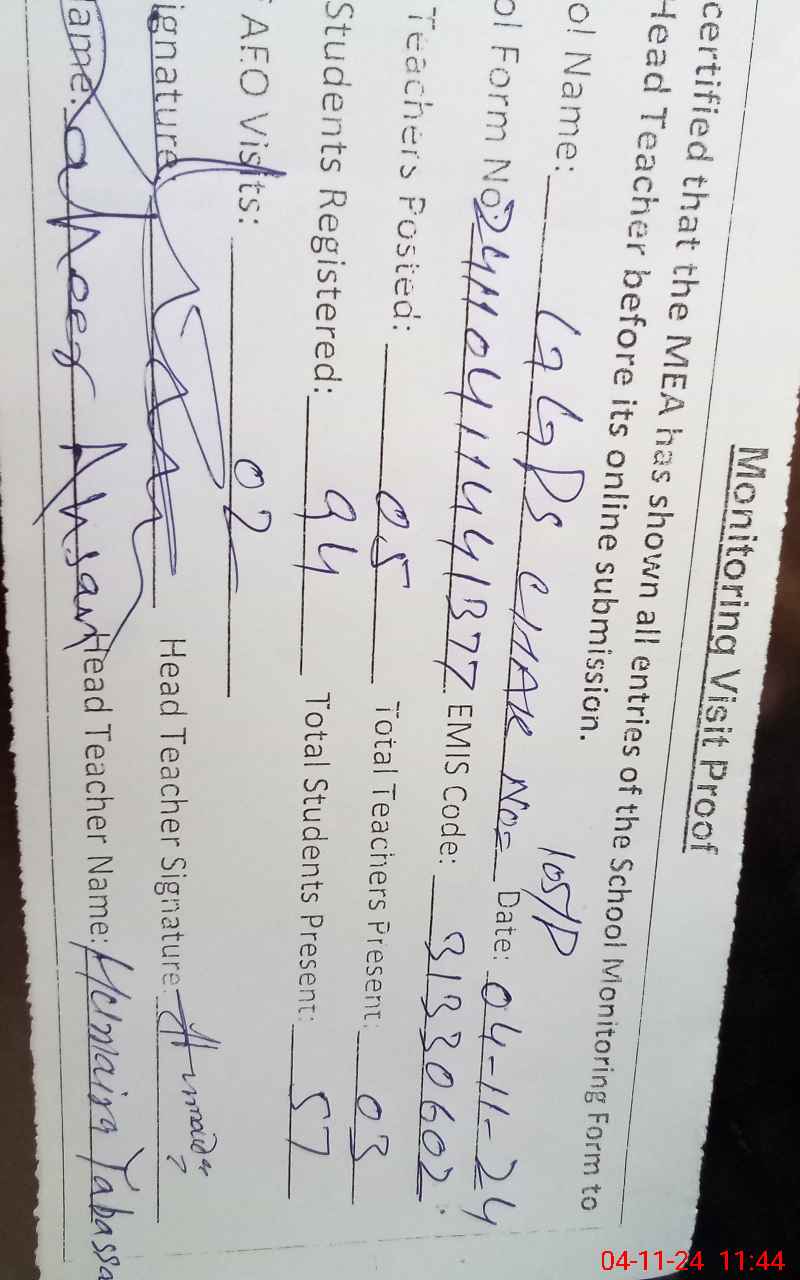 Monitoring Visit Proof
certified that the MEA has shown all entries of the School Monitoring Form to
Head Teacher before its online submission.
ol Name: GGPS CHAK No= 105/P Date: 04-11-24
ol Form No: EMIS Code: 31330602
Teachers Posted: 05 Total Teachers Present: 03
Students Registered: 94 Total Students Present: 57
AEO Visits: 02
ignature Head Teacher Signature: Humaira
ame: Ahsan Head Teacher Name: Humaira Tabassa
04-11-24 11:44